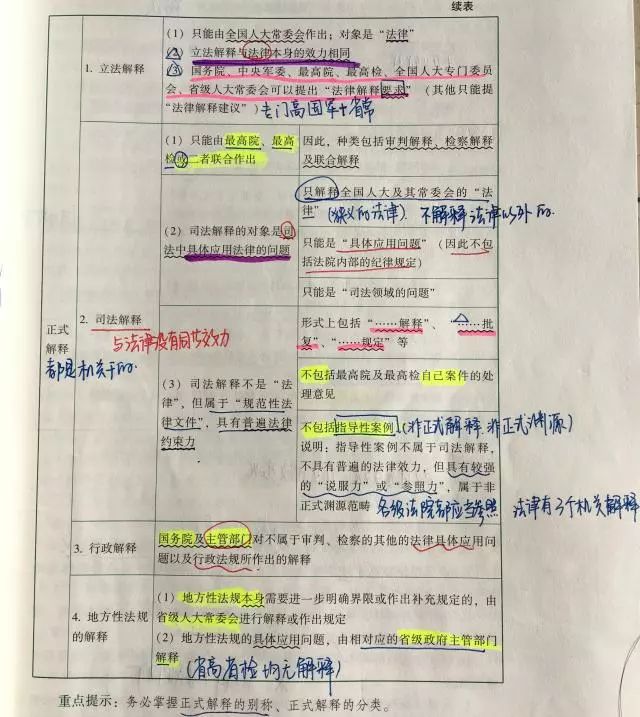 续表
1. 立法解释
(1) 只能由全国人大常委会作出；对象是“法律”
(2) 立法解释与法律本身的效力相同
(3) 国务院、中央军委、最高院、最高检、全国人大专门委员
会、省级人大常委会可以提出“法律解释要求”（其他只能提
“法律解释建议”）专门高国军十省常
正式
解释
都是机关干的.
2. 司法解释
与法律没有同等效力
(1) 只能由最高院、最高
检或二者联合作出
因此，种类包括审判解释、检察解释
及联合解释
(2) 司法解释的对象是司
法中具体应用法律的问题
只解释全国人大及其常委会的“法
律”(狭义的法律). 不解释法律以外的.
只能是“具体应用问题”（因此不包
括法院内部的纪律规定）
只能是“司法领域的问题”
(3) 司法解释不是“法
律”，但属于“规范性法
律文件”，具有普遍法律
约束力
形式上包括“……解释”、“……批
复”、“……规定”等
不包括最高院及最高检自己案件的处
理意见
不包括指导性案例 (非正式解释 非正式渊源)
说明：指导性案例不属于司法解释，
不具有普遍的法律效力，但具有较强
的“说服力”或“参照力”，属于非
正式渊源范畴 各级法院都应当参照 法律有3个机关解释
3. 行政解释
国务院及主管部门对不属于审判、检察的其他的法律具体应用问
题以及行政法规所作出的解释
4. 地方性法规
的解释
(1) 地方性法规本身需要进一步明确界限或作出补充规定的，由
省级人大常委会进行解释或作出规定
(2) 地方性法规的具体应用问题，由相对应的省级政府主管部门
解释 (省高省检均无解释)
重点提示：务必掌握正式解释的别称、正式解释的分类。